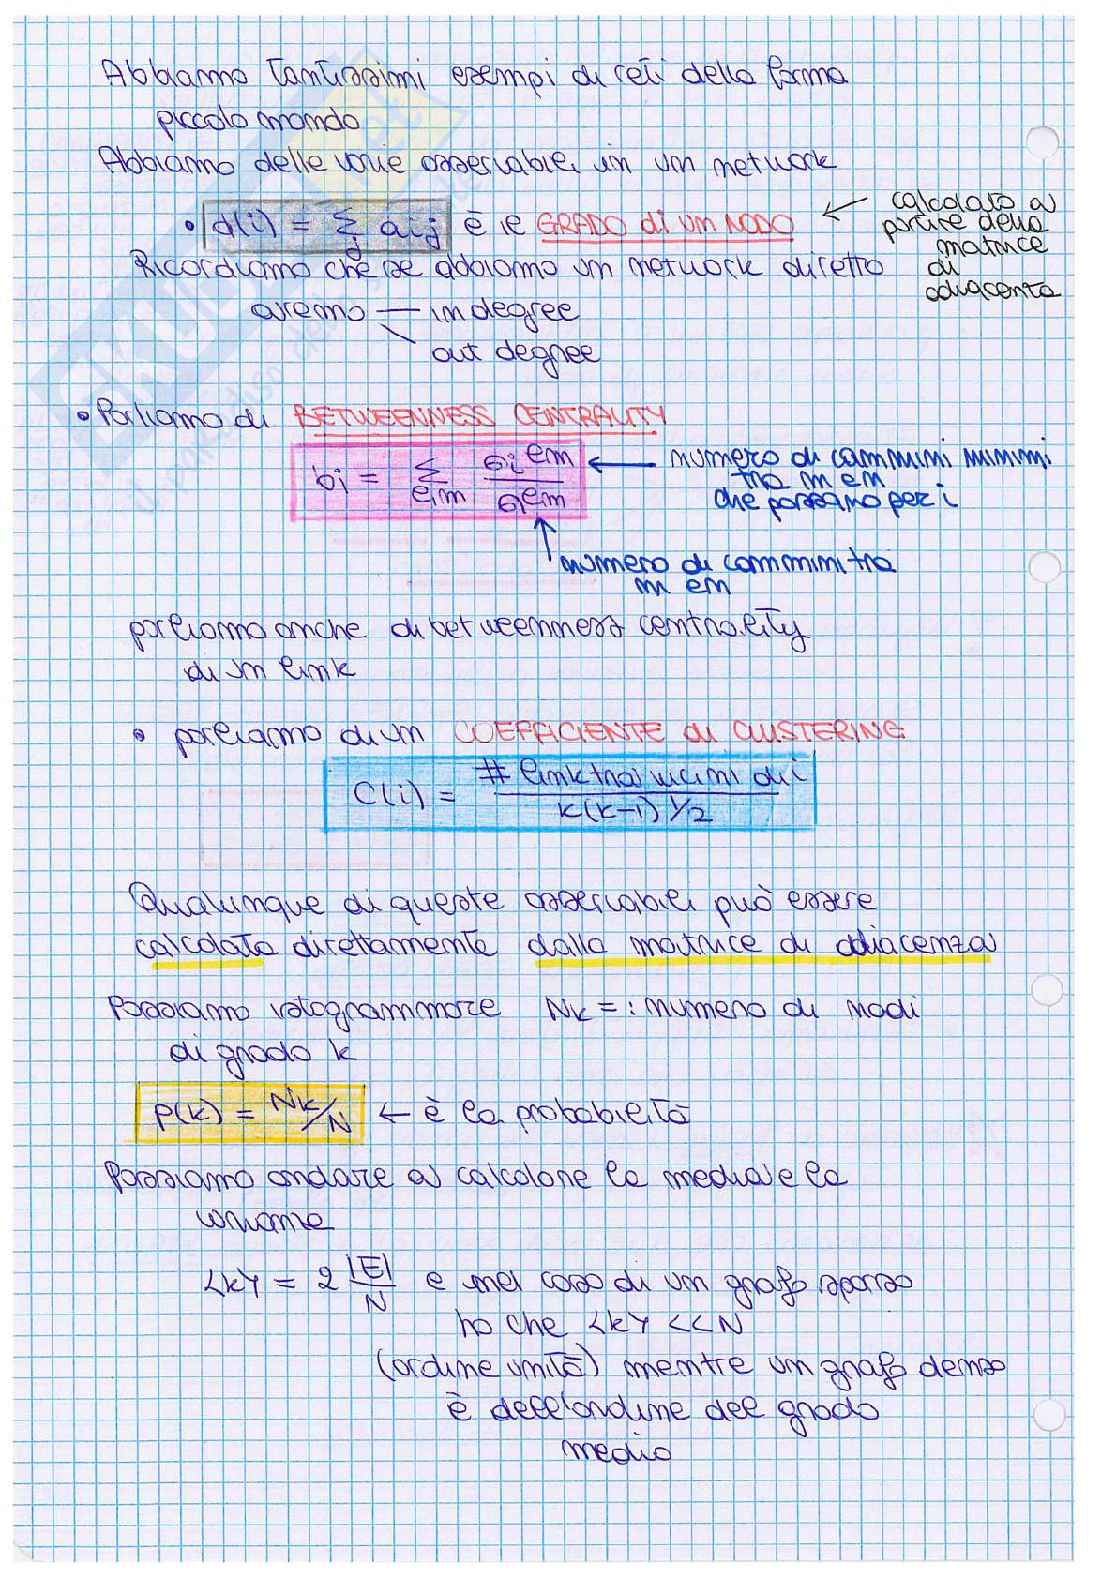 Abbiamo tantissimi esempi di reti della forma
piccolo mondo
Abbiamo delle varie osservabili in un network
• d(i) = Σ_j aij è il GRADO di UN NODO ← calcolato a
partire della
matrice
di
adiacenta
Ricordiamo che se abbiamo un network diretto
avremo — in degree
\ out degree
• Parliamo di BETWEENNESS CENTRALITY
bi = Σ_l,m σi^lm / σ^lm ← numero di cammini minimi
tra m e n
che passano per i
↑ numero di cammini tra
m e n
parliamo anche di betweenness centrality
di un link
• parliamo di un COEFFICIENTE di CLUSTERING
C(i) = # link tra i vicini di i / k(k-1) 1/2
Qualunque di queste osservabili può essere
calcolata direttamente dalla matrice di adiacenza
Possiamo istogrammare Nk =: numero di nodi
di grado k
P(k) = Nk/N ← è la probabilità
Possiamo andare a calcolare la media e la
varianza
<k> = 2 |E|/N e nel caso di un grafo sparso
ho che <k> << N
(ordine unità) mentre un grafo denso
è dell'ordine del grado
medio